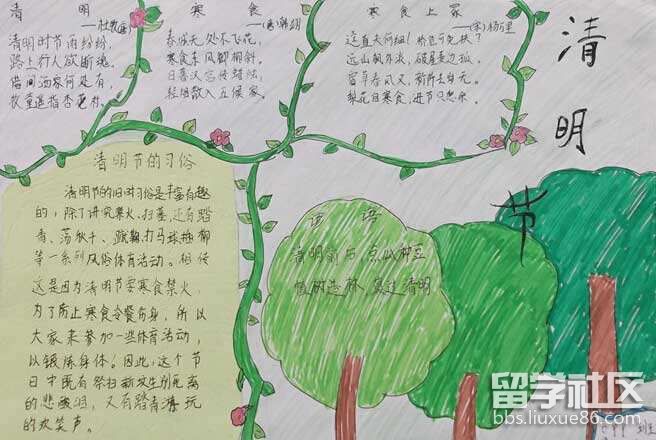 清明
——杜牧(唐)
清明时节雨纷纷,
路上行人欲断魂。
借问酒家何处有,
牧童遥指杏花村。
寒食
——(唐)韩翃
春城无处不飞花,
寒食东风御柳斜。
日暮汉宫传蜡烛,
轻烟散入五侯家。
寒食上冢
——(宋)杨万里
远山枫外淡,破屋麦边孤。
宿草春风又,新阡去岁无。
梨花自寒食,进节只愁余。
清
明
节
清明节的习俗
清明节的习俗是丰富有趣
的,除了讲究禁火、扫墓,还有踏
青、荡秋千、蹴鞠、打马球、插柳
等一系列风俗体育活动。相传
这是因为清明节要寒食禁火,
为了防止寒食冷餐伤身,所以
大家来参加一些体育活动,
以锻炼身体。因此,这个节
日中既有祭扫新坟生别死离
的悲酸泪,又有踏青游玩
的欢笑声。
谚语
清明前后,点瓜种豆
植树造林,莫过清明
班
留学社区
bbs.liuxue86.com